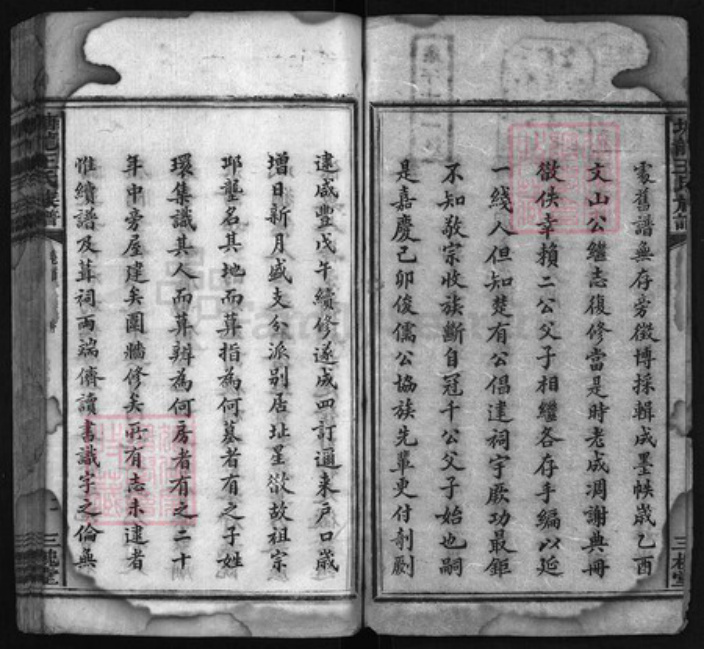 處舊譜無存旁徵博採輯成墨帙歲乙酉
文山公繼志復修當是時老成凋謝典冊
徵佚幸賴二公父子相繼各存手編以延
一綫人但知楚有公倡建祠宇厥功最鉅
不知敬宗收族斷自冠千公父子始也嗣
是嘉慶己卯俊儒公協族先輩更付剞劂
逮咸豐戊午續修遂成四訂邇來戶口歲
增日新月盛支分派別居址星散故祖宗
邱壟名其地而葬指為何墓者有之子姓
環集識其人而莫辨為何房者有之二十
年中旁屋建矣圍牆修矣所有志未逮者
惟續譜及葺祠兩端儕讀書識字之倫無
三槐堂